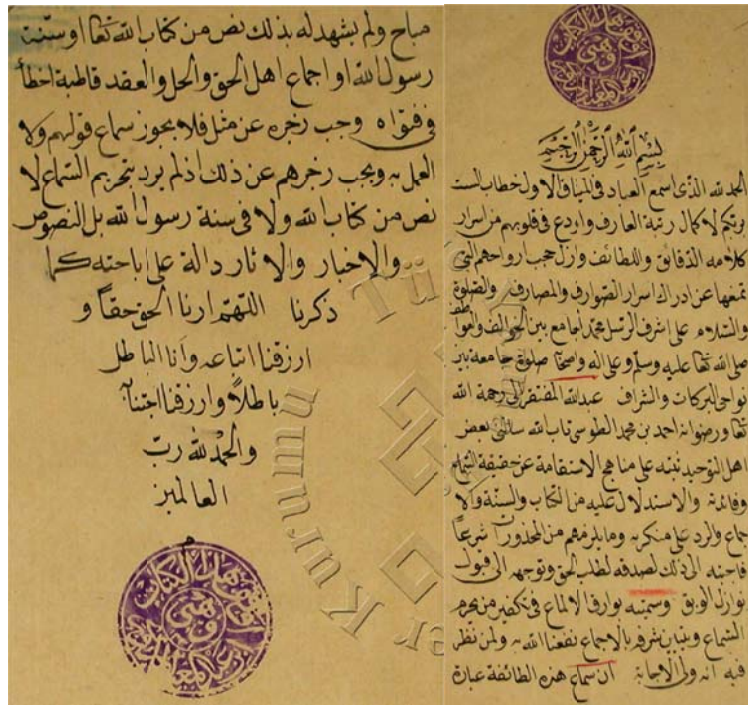 بسم الله الرحمن الرحيم
الحمد لله الذى اسمع العباد فى الميثاق الاول خطاب الست
بربكم لاكمال رتبة العارف واودع فى قلوبهم من اسرار
كلامه الدقائق واللطائف وازل حجب ارواحهم التى
تمنعها عن ادراك اسرار الصوارف والمصارف والصلوة
والسلام على اشرف الرسل محمد الجامع بين
صلى الله تعا عليه وسلم وعلى اله واصحا صلوة جامعة بين
نواحى البركات والشراف عبد الله المفتقر الى رحمة الله
تعا ورضوانه احمد بن محمد الطوسى تاب الله سالنى بعض
اهل التوحيد نبته على مناهج الاستقامة عن حقيقة السماع
وفائدته والاستدلال عليه من الكتاب والسنة والا
جماع والرد على منكره وما يلزمهم من المحذورات شرعا
فاجبته الى ذلك لصدقه لطلب الحق وتوجهه الى قبول
نوازل وسميته بوارق الالماع فى تكفير من يحرم
السماع وتبيان شرفه بالاجماع نفعنا الله به ولمن نظر
فيه انه ولى الاجابة ان سماع هذه الطائفة عبارة
مباح ولم يشهد له بذلك نص من كتاب الله تعا او سنة
رسول الله او اجماع اهل الحق والحل والعقد قاطبة اخطأ
فى فتواه وجب زجره عن مثل فلا يجوز سماع قولهم ولا
العمل به ويجب زجرهم عن ذلك اذ لم يرد بتحريم السماع لا
نص من كتاب الله ولا فى سنة رسول الله بل النصوص
والاخبار والاثار دالة على اباحته كما
ذكرنا اللهم ارنا الحق حقاً و
ارزقنا اتباعه وأرنا الباطل
باطلاً وارزقنا اجتنابه
والحمد لله رب
العالمين
م
Tü
er Kurumu